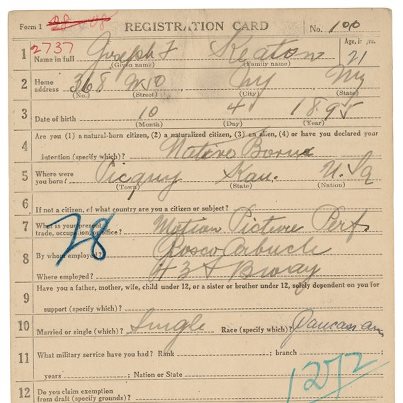 Form 1 REGISTRATION CARD No. 100
2737
1 Name in full Joseph F Keaton Age, in yrs. 21
(Given name) (Family name)
2 Home address 368 City NY
(No.) (Street) (City) (State)
3 Date of birth 10 4 1895
(Month) (Day) (Year)
4 Are you (1) a natural-born citizen, (2) a naturalized citizen, (3) an alien, (4) or have you declared your
intention (specify which)? Native Born
5 Where were you born? Picquay Kan. U.S.a
(Town) (State) (Nation)
6 If not a citizen, of what country are you a citizen or subject?
7 What is your present trade, occupation, or office? Motion Picture Perf
28
8 By whom employed? Rosco Arbucle
Where employed? 43 & Broway
9 Have you a father, mother, wife, child under 12, or a sister or brother under 12, solely dependent on you for
support (specify which)?
10 Married or single (which)? Single Race (specify which)? Caucasian
11 What military service have you had? Rank branch
years Nation or State
1272
12 Do you claim exemption from draft (specify grounds)?